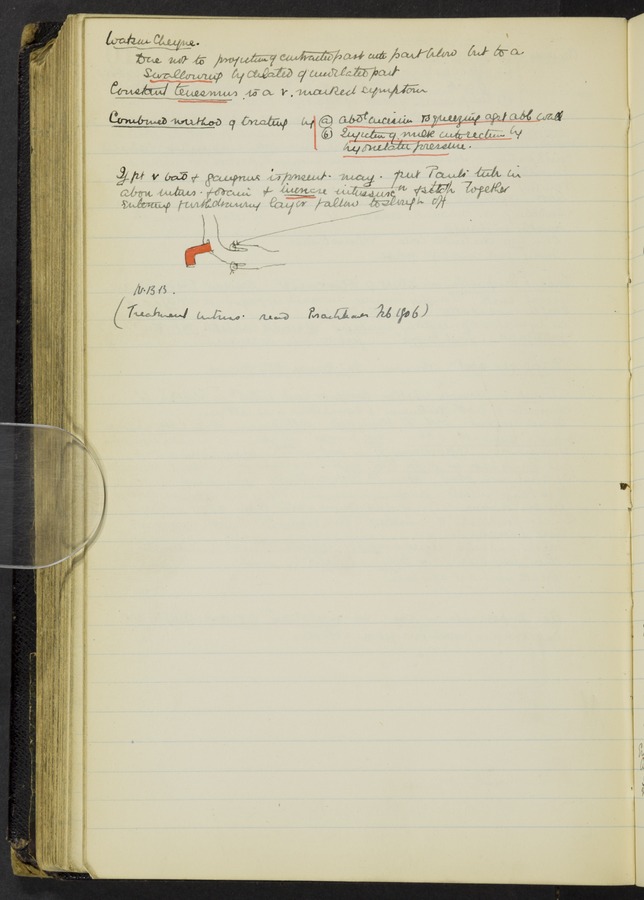 Watson Cheyne.
Due not to projecting contracted part into part below but to a
Swallowing by dilated of undilated part
Constant tenesmus is a v. marked symptom
Combined method of treating by (a) abd^l incision & squeezing agst abd wall
(b) Injecting milk into rectum by
hydrostatic pressure.
If pt v bad & gangrene is present. may. put Pauls tube in
above intuss. & drain & incise intussusc^n & stitch together
entering & withdrawing layer & allow to slough off
N.B.B.
(Treatment intuss. read Practitioner Feb 1906)